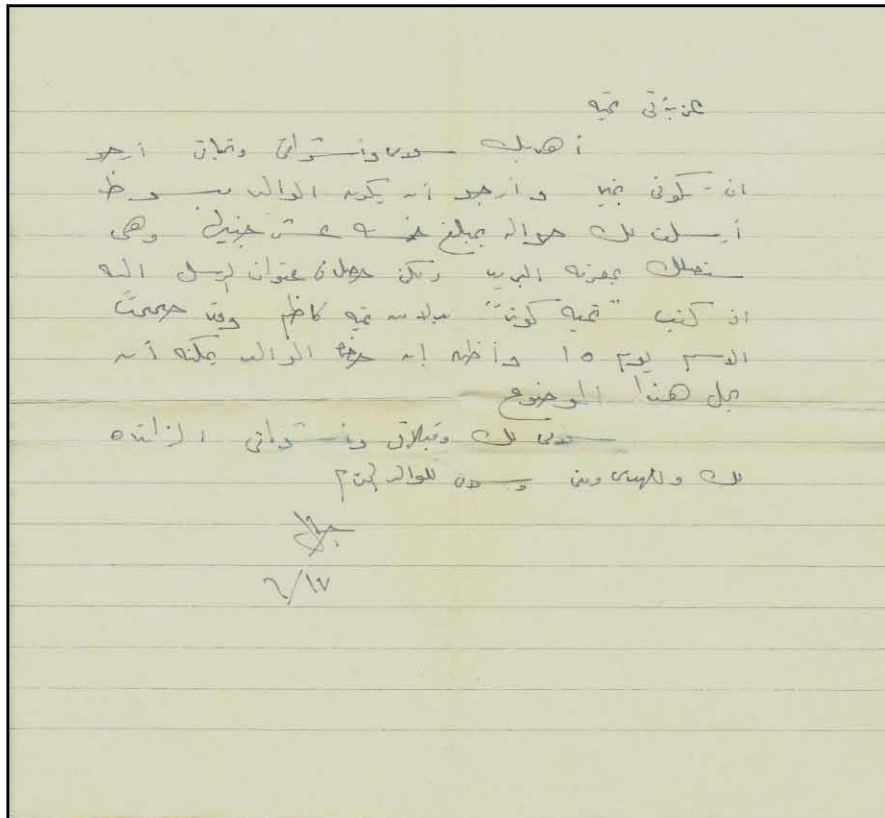 عزيزتى تحيه
أهديك سلامى وأشواقى وتحياتى أرجو
ان تكونى بخير وأرجو أن يكون الوالد مبسوط
أرسلت لك حواله بمبلغ خمسه عشر جنيها وهى
ستصلك بمعرفه البريد ولكن حصل فى عنوان المرسل اليه
اذ كتب "تحيه" بدلا من تحيه كاظم وقد صححت
الاسم يوم ١٥ وأظن ان حضرة الوالد يمكنه أن
يحل هذا الموضوع
سلامى لك وقبلاتى وأشواقى الزائده
لك ولهدى ومنى وسلامى للوالد المحترم
جمال
٦/١٧